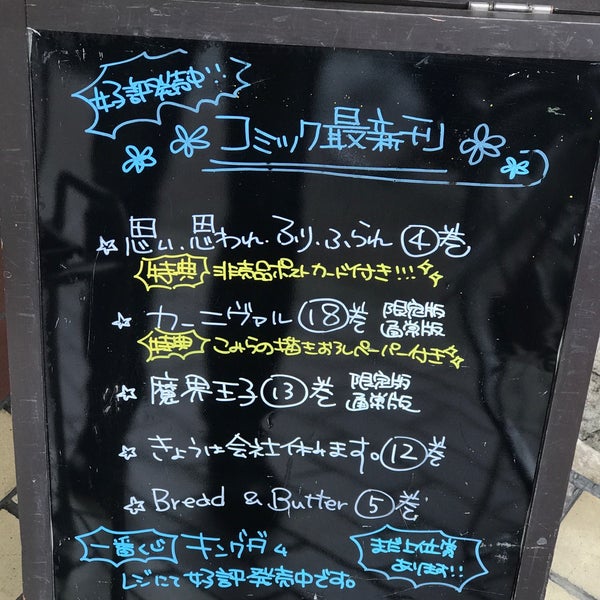 好評発売中!!
コミック最新刊
☆思い、思われ、ふり、ふられ ④巻
特典 非売品ポストカード付き!!!
☆カーニヴァル ⑱巻 限定版 通常版
特典 こみらの描きおろしペーパー付き
☆魔界王子 ⑬巻 限定版 通常版
☆きょうは会社休みます。⑫巻
☆Bread & Butter ⑤巻
一番くじ キングダム
まだ上位賞あります!!
レジにて好評発売中です。